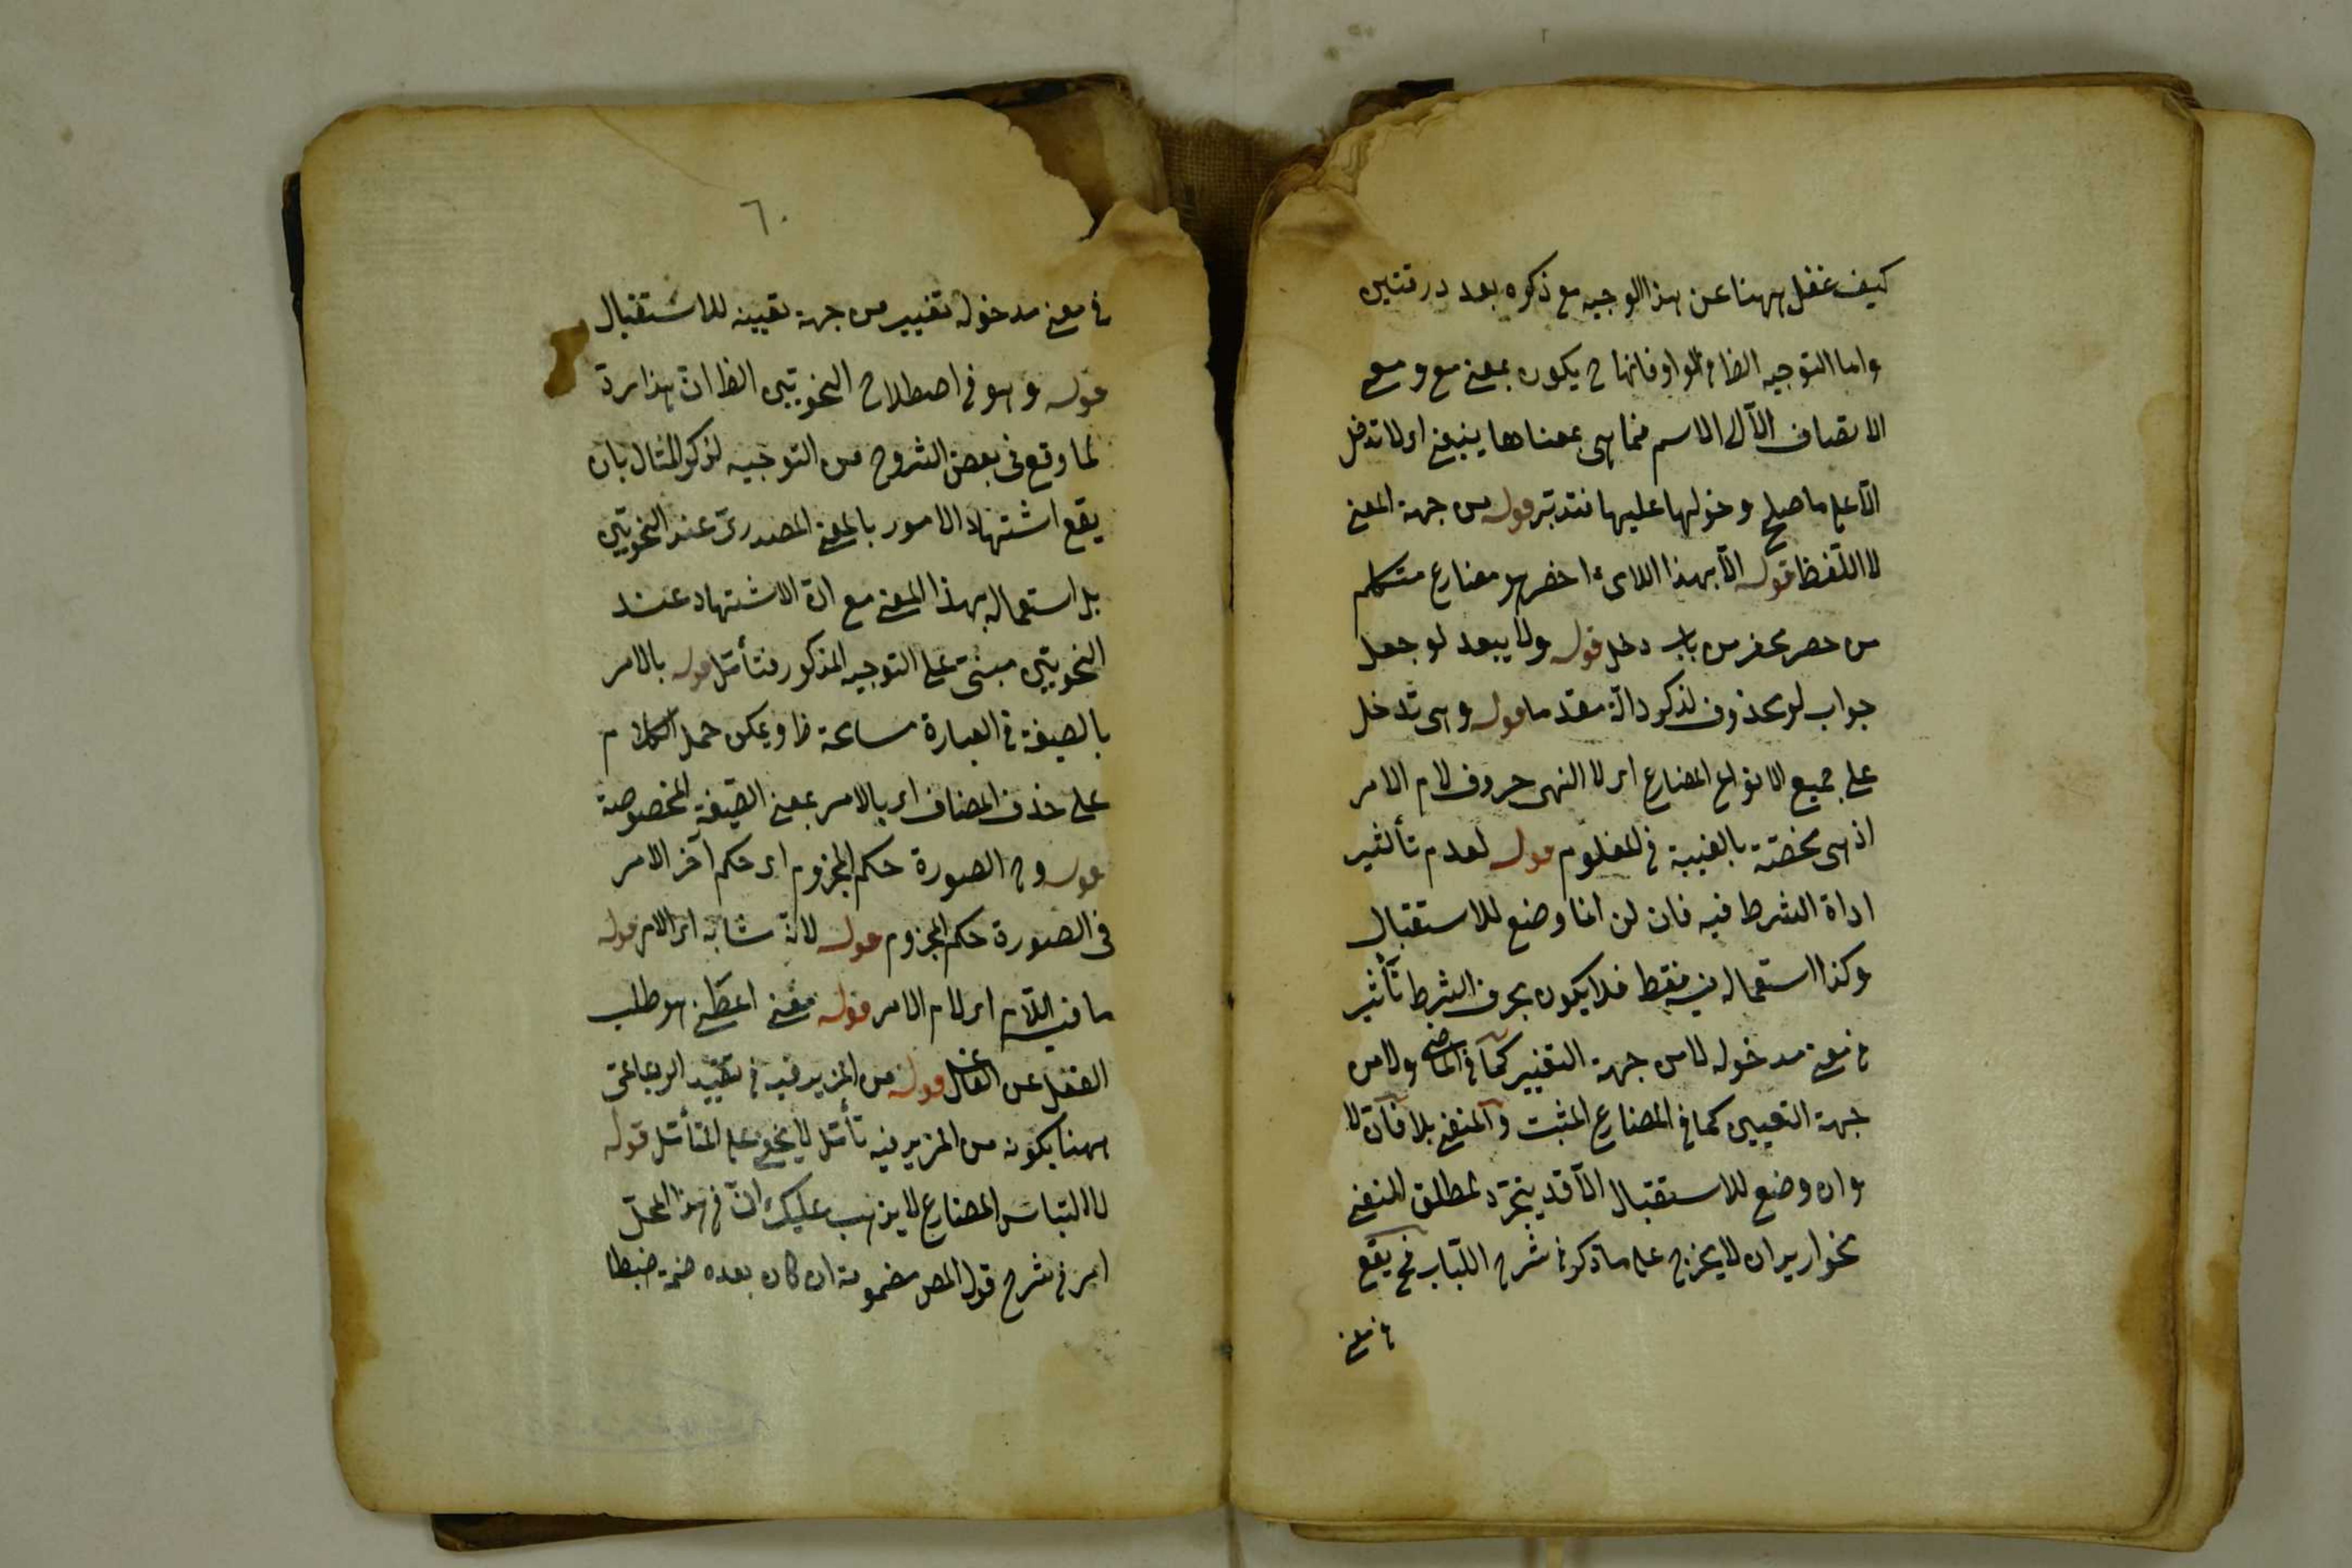 كيف غفل ههنا عن هذا الوجيه مع ذكره بعد درقتين
واما التوجيه الظا في الواو فانها ح يكون بمعنى مع و مع
الا تضاف الا الى الاسم فما هي بمعناها ينبغي ان لا تدخل
الا على ما صلح دخولها عليها فتدبر قوله من جهة المعنى
لا اللفظ قوله الا بهذا اللاى احضر هو مضارع متكلم
من حضر يحضر من باب دخل قوله ولا يبعد لو جعل
جواب لو محذوف لذكر دالة مقدما قوله وهي تدخل
على جميع الانواع المضارع اى لا النهى حروف لام الامر
اذ هي مختصة بالغيبة في المعلوم قوله لعدم تأثير
اداة الشرط فيه فان لن انما وضع للاستقبال
وكذا استعماله فيه فقط فلا يكون بحرف الشرط تأثير
في معنى مدخوله لا من جهة التغيير كما في الماضي ولا من
جهة التعيين كما في المضارع المثبت والمنفي بلا فان لا
وان وضع للاستقبال الا قد يتجرد لمطلق المنفي
نحو اريد ان لا يخرج على ما ذكر في شرح اللباب فح يقع
في معنى
٦٠
في معنى مدخوله تغيير من جهة تعيينه للاستقبال
قوله وهو في اصطلاح النحويين الظا ان هذا رد
لما وقع في بعض الشروح من التوجيه لذكر المثال بان
يقع اشتهاد الامور بالمعنى المصدرى عند النحويين
بل استعماله بهذا المعنى مع ان الاشتهاد عند
النحويين مبنى على التوجيه المذكور فتأمل قوله بالامر
بالصيغة في العبارة مسامحة ظا ويمكن حمل الكلام
على حذف المضاف اى بالامر بمعنى الصيغة المخصوصة
قوله و في الصورة حكم المجزوم اى حكم آخر الامر
في الصورة حكم المجزوم قوله لانه شابه اى الامر قوله
ما فيه اللام اى لام الامر قوله معنى اعطى هو طلب
الفعل عن الفاعل قوله من المزيد فيه في تقييد الرباعى
ههنا بكونه من المزيد فيه تأمل لا يخفى على المتأمل قوله
لالتباس المضارع لا يذهب عليك ان في هذا المحل
امر في شرح قول المص مضمومة ان كان بعده ضمة ضبطا